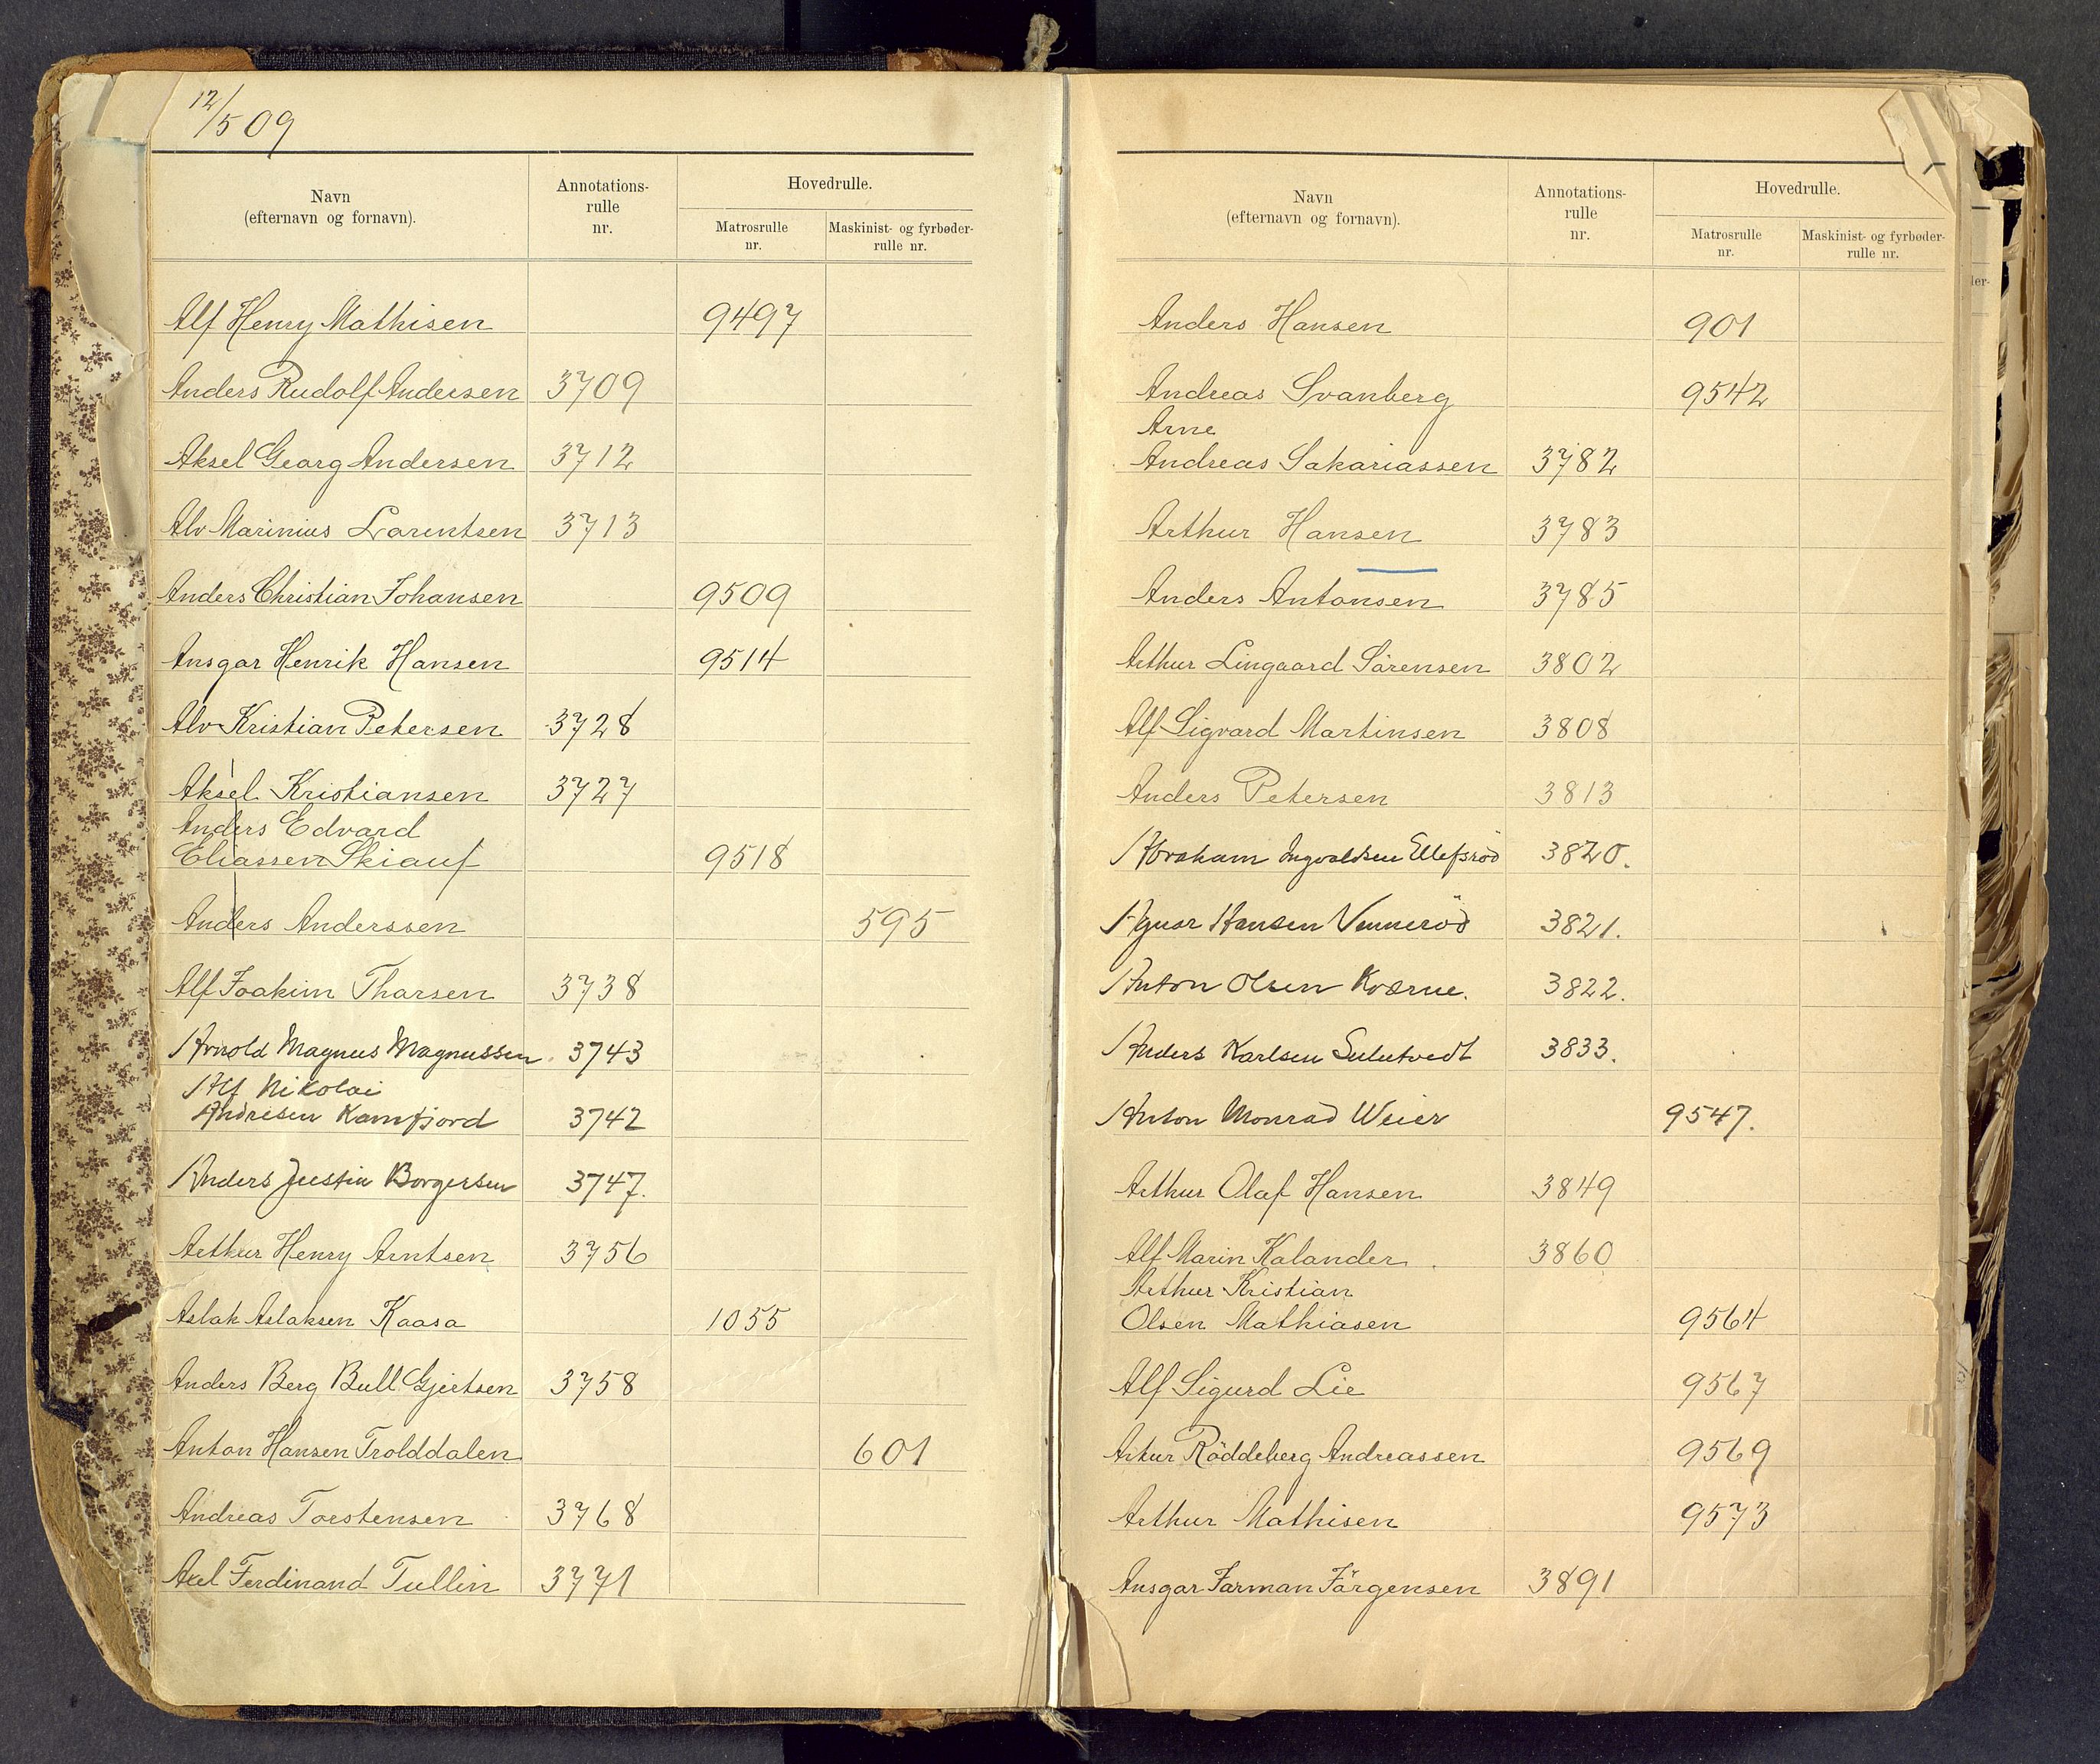 12/5 09
Navn
(efternavn og fornavn).
Annotations-
rulle
nr.
Hovedrulle.
Matrosrulle
nr.
Maskinist- og fyrbøder-
rulle nr.
Alf Henry Mathisen 9497
Anders Rudolf Andersen 3709
Aksel Georg Andersen 3712
Alv Marinius Larentsen 3713
Anders Christian Johansen 9509
Ansgar Henrik Hansen 9514
Alv Kristian Petersen 3728
Aksel Kristiansen 3727
Anders Edvard
Eliassen Skiauf 9518
Anders Anderssen 595
Alf Joakim Tharsen 3738
Arnold Magnus Magnussen 3743
Alf Nikolai
Andresen Kamfjord 3742
Anders Justin Borgersen 3747.
Arthur Henry Arntsen 3756
Aslak Aslaksen Kaasa 1055
Anders Berg Bull Gjertsen 3758
Anton Hansen Trolddalen 601
Andreas Torstensen 3768
Axel Ferdinand Tullin 3771
Navn
(efternavn og fornavn).
Annotations-
rulle
nr.
Hovedrulle.
Matrosrulle
nr.
Maskinist- og fyrbøder-
rulle nr.
Anders Hansen 901
Andreas Svanberg 9542
Arne
Andreas Sakariassen 3782
Arthur Hansen 3783
Anders Antonsen 3785
Arthur Lingaard Sörensen 3802
Alf Sigvard Martinsen 3808
Anders Petersen 3813
Abraham Ingvaldsen Ellefsröd 3820.
Agnar Hansen Venneröd 3821.
Anton Olsen Kværne. 3822.
Anders Karlsen 3833.
Anton Monrad Weier 9547.
Arthur Olaf Hansen 3849
Alf Marin Kalander 3860
Arthur Kristian
Olsen Mathiasen 9564
Alf Sigurd Lie 9567
Artur Röddeberg Andreassen 9569
Arthur Mathisen 9573
Ansgar Farman Jörgensen 3891